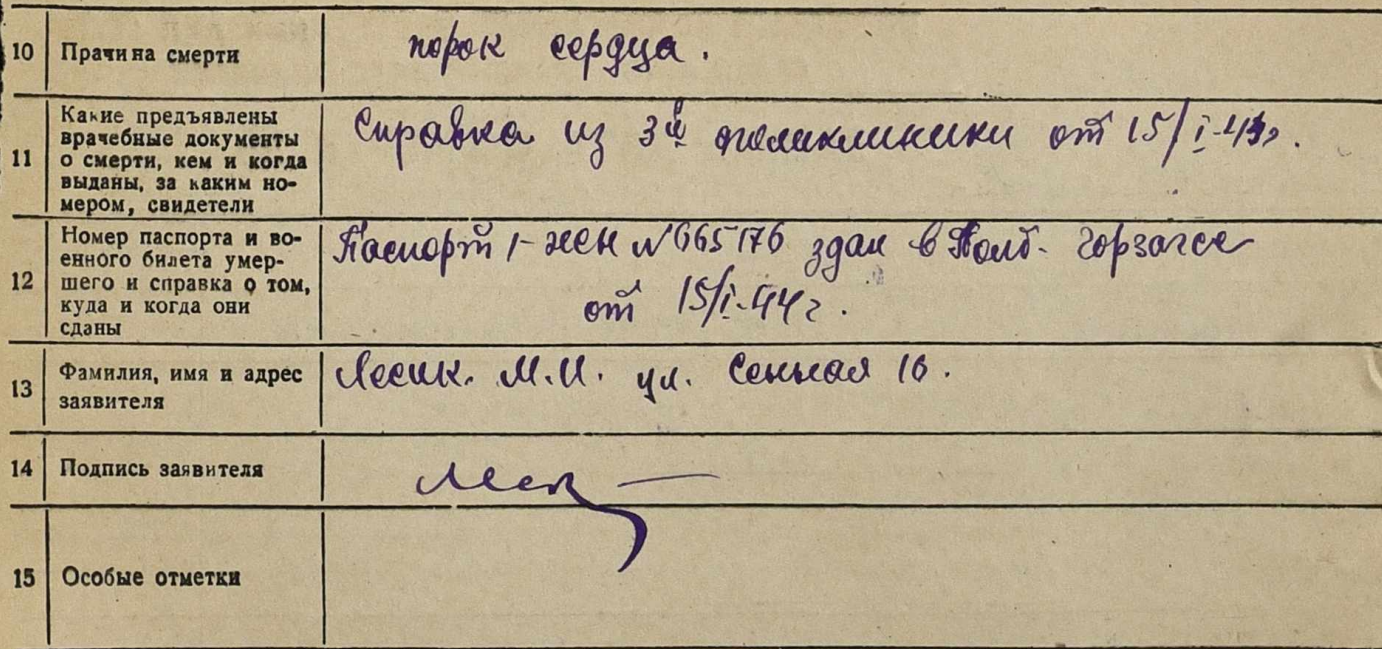 10 Прачина смерти порок сердца.
11 Какие предъявлены
врачебные документы
о смерти, кем и когда
выданы, за каким но-
мером, свидетели
Справка из 3й поликлиники от 15/I-44г.
12 Номер паспорта и во-
енного билета умер-
шего и справка о том,
куда и когда они
сданы
Паспорт 1-жен №665176 здан в горзагсе
от 15/I-44г.
13 Фамилия, имя и адрес
заявителя
Лесик. М.И. ул. Сенная 16.
14 Подпись заявителя
15 Особые отметки